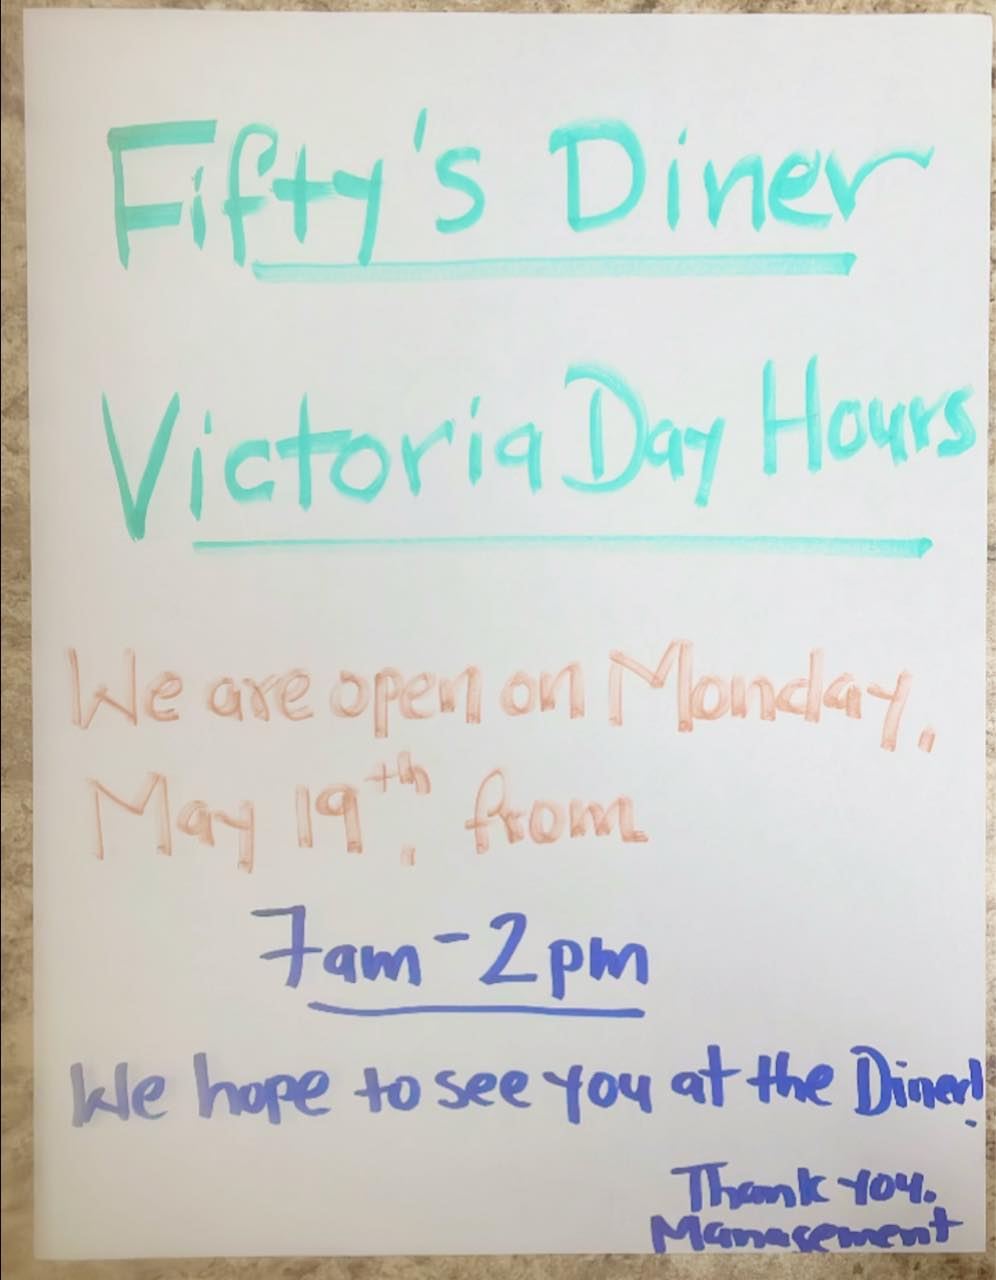 Fifty's Diner
Victoria Day Hours
We are open on Monday,
May 19th, from
7am - 2pm
We hope to see you at the Diner!
Thank you.
Management